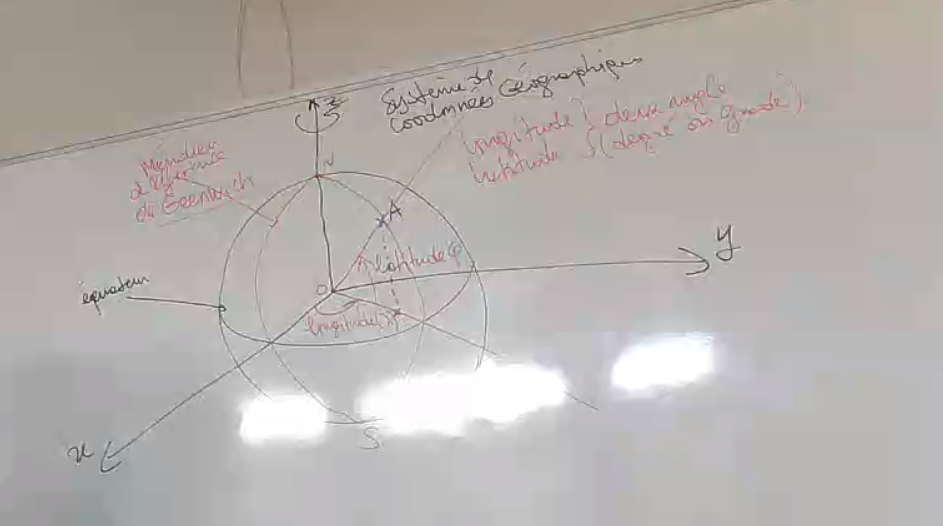 z
Système de
Coordonnées Géographiques
longitude } deux angle
latitude } (degré ou grade).
Méridien
de référence
de Greenwich
N
A
latitude φ
y
O
équateur
longitude
x
S